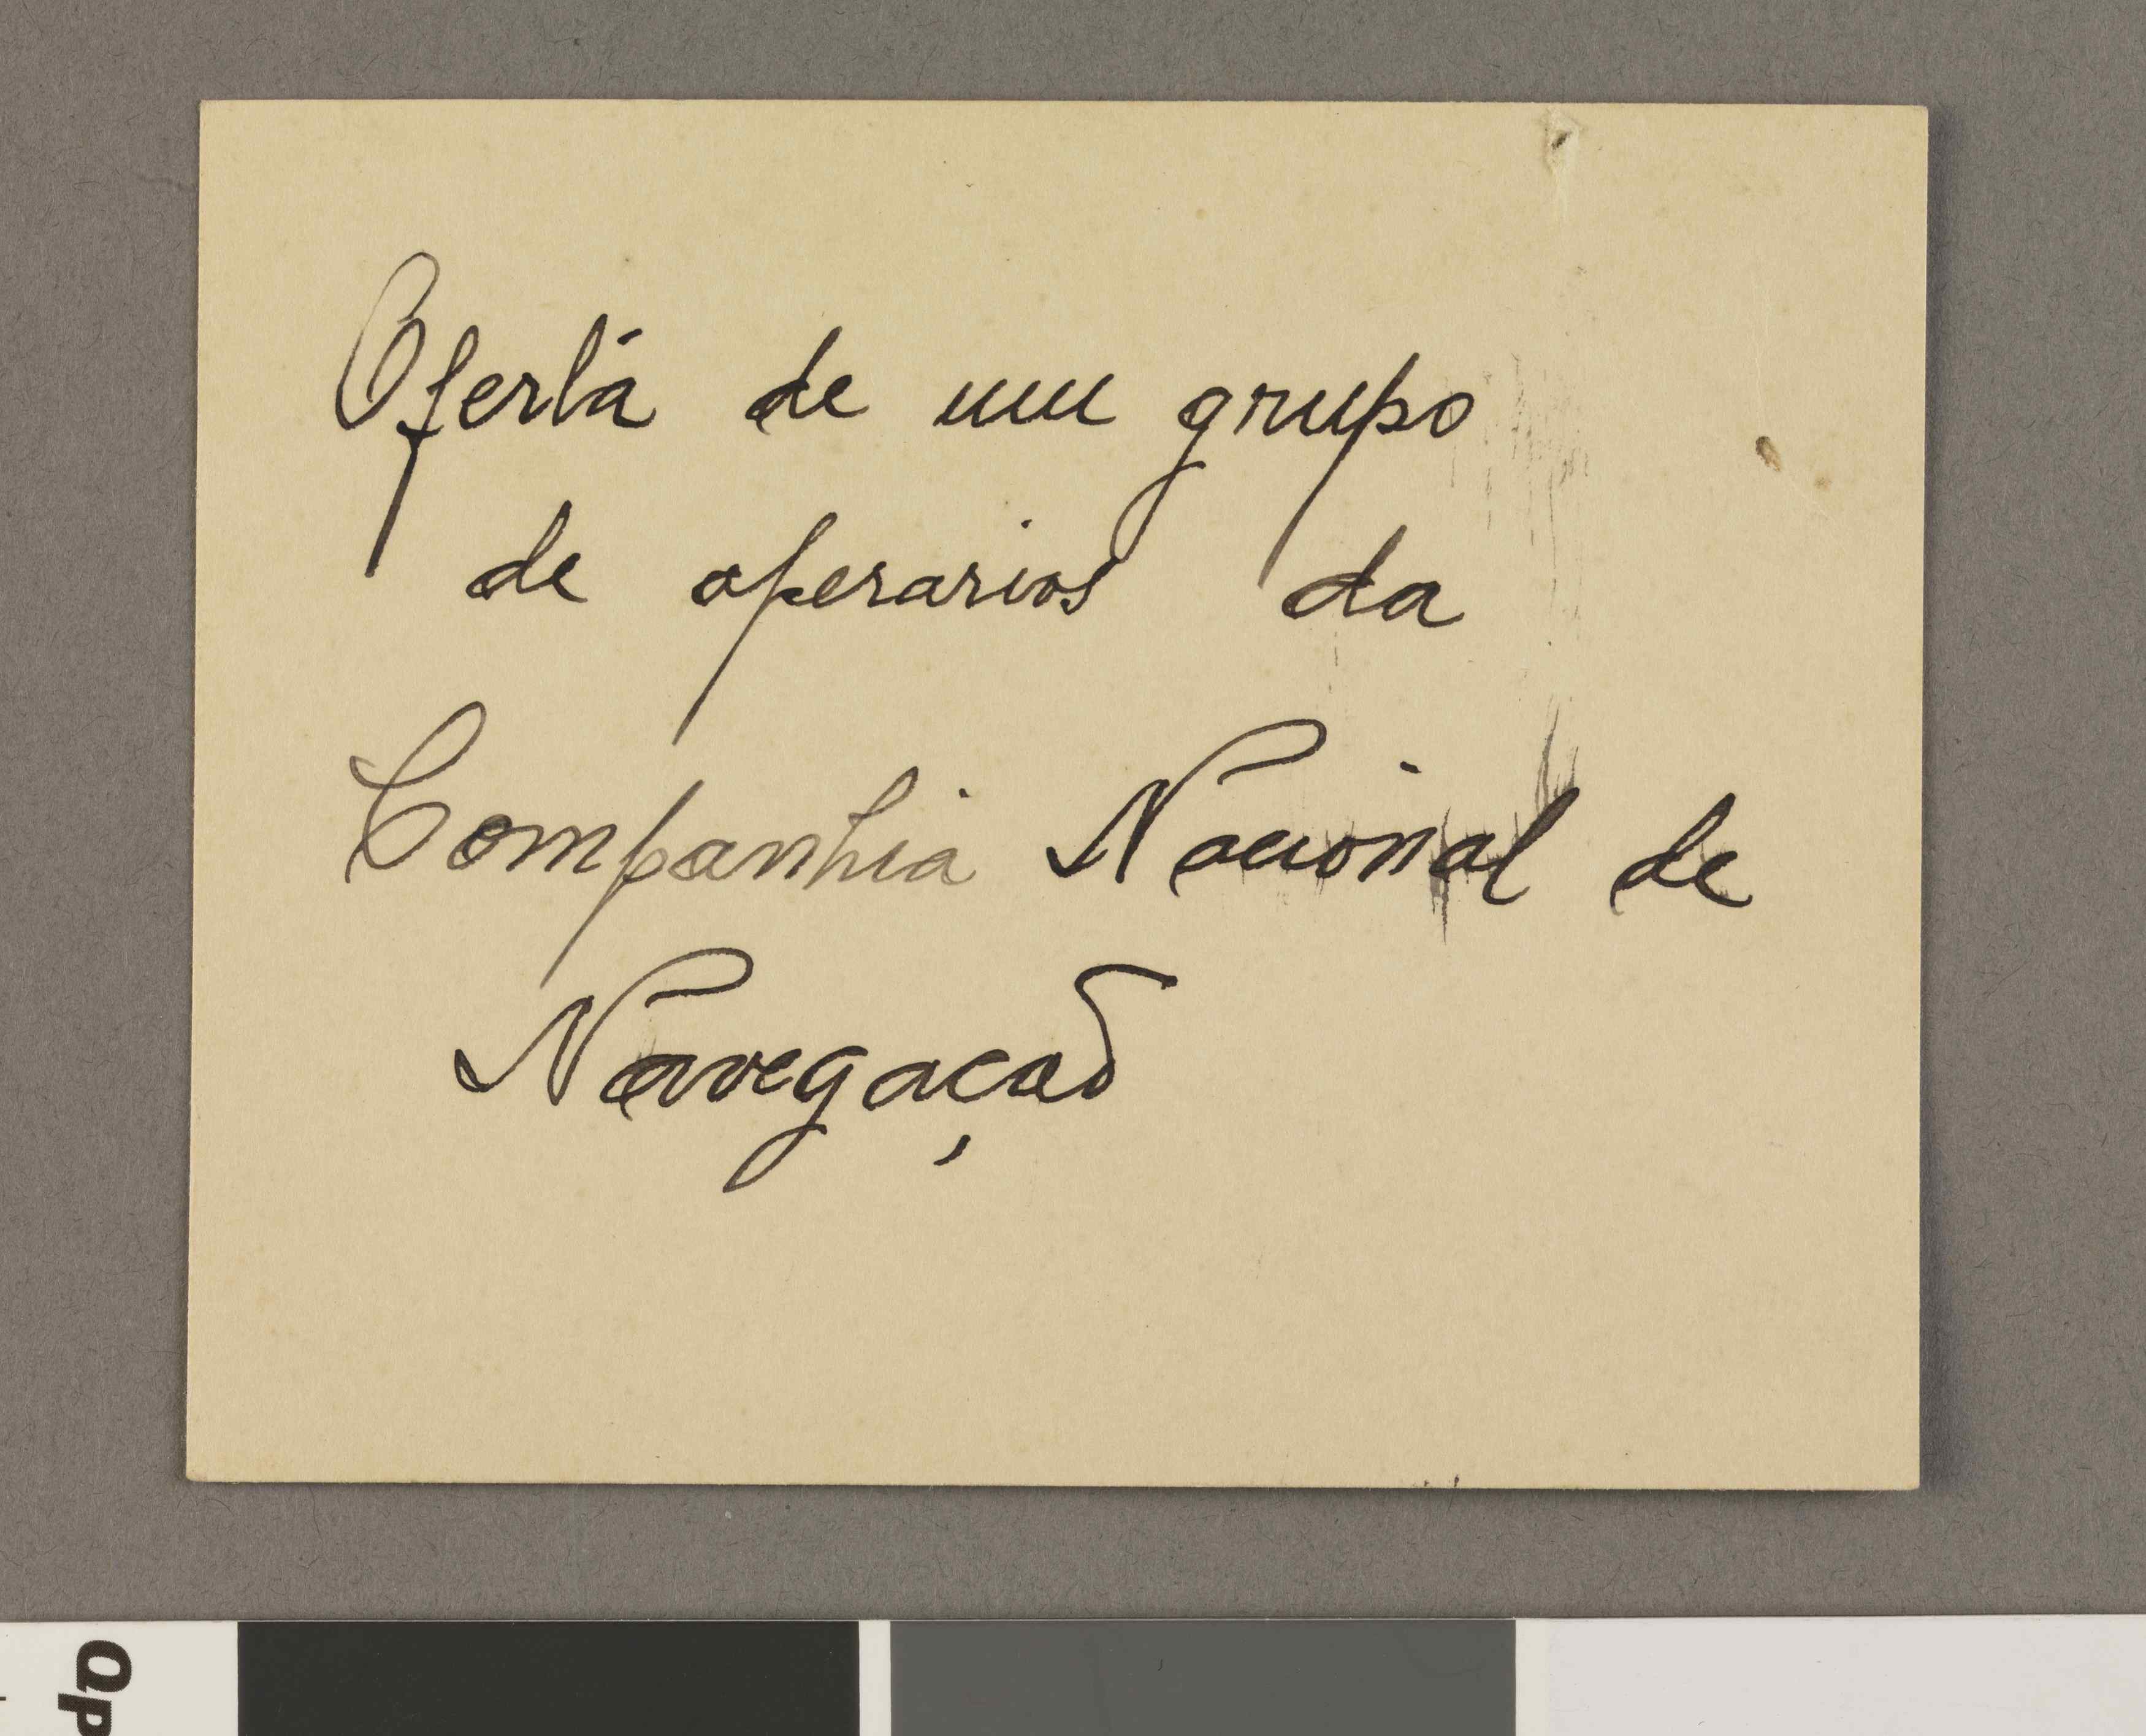 Oferta de um grupo
de operarios da
Companhia Nacional de
Navegação
Op